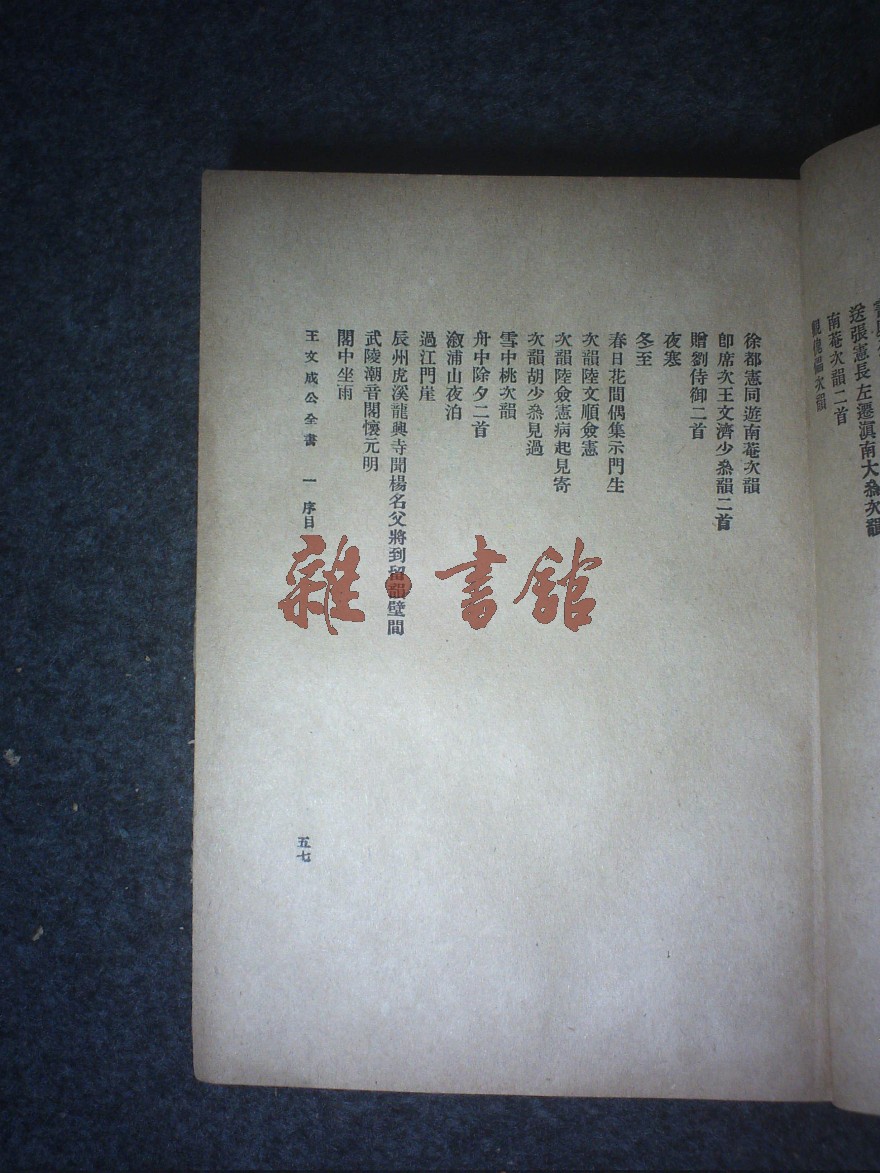 送張憲長左遷滇南大叅次韻
南菴次韻二首
觀傀儡次韻
徐都憲同遊南菴次韻
卽席次王文濟少叅韻二首
贈劉侍御二首
夜寒
冬至
春日花間偶集示門生
次韻陸文順僉憲
次韻陸僉憲病起見寄
次韻胡少叅見過
雪中桃次韻
舟中除夕二首
漵浦山夜泊
過江門崖
辰州虎溪龍興寺聞楊名父將到留韻壁間
武陵潮音閣懷元明
閣中坐雨
王文成公全書 一 序目
五七
雜·書館